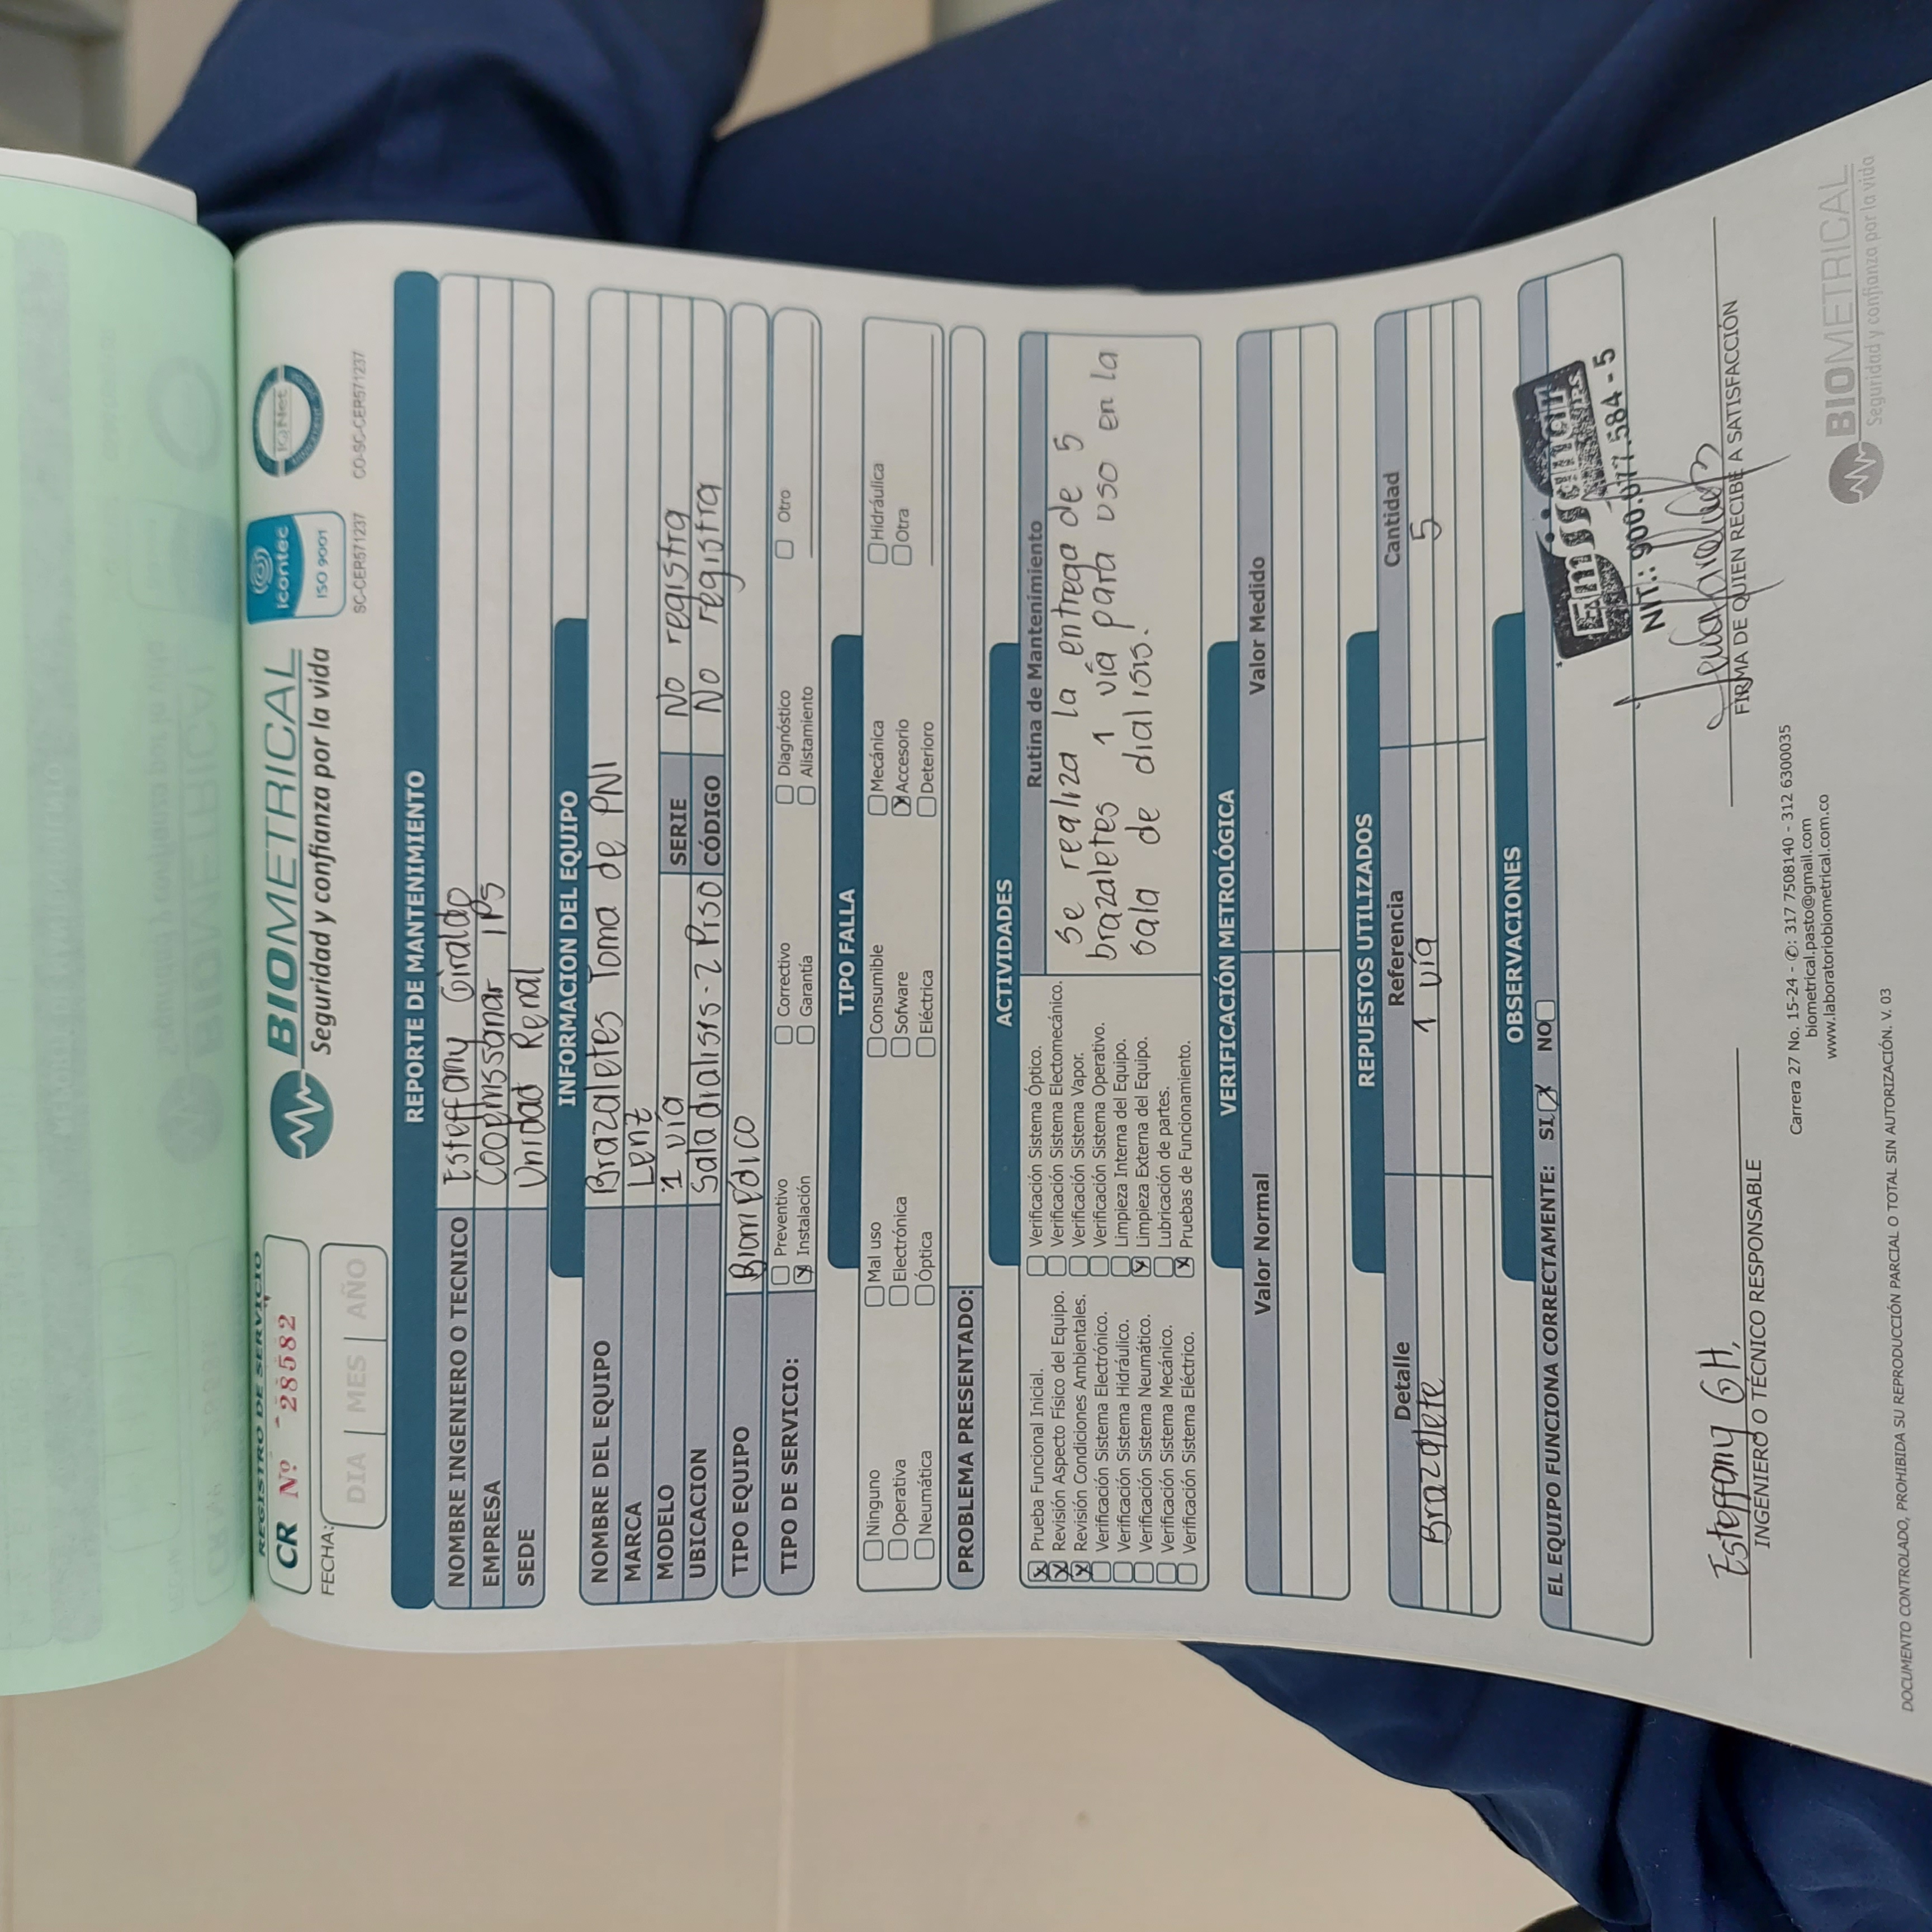 REPORTE DE MANTENIMIENTO
REGISTRO DE SERVICIO
CR Nº 28582
FECHA:
DIA MES AÑO
BIOMETRICAL
Seguridad y confianza por la vida
icontec
ISO 9001
SC-CER571237
IQNet
CO-SC-CER571237
REPORTE DE MANTENIMIENTO
NOMBRE INGENIERO O TECNICO Esteffany Giraldo
EMPRESA Coopmssanar IPS
SEDE Unidad Renal
INFORMACION DEL EQUIPO
NOMBRE DEL EQUIPO Brazaletes Toma de PNI
MARCA Lenz
MODELO 1 vía SERIE No registra
UBICACION Sala dialisis - 2 Piso CÓDIGO No registra
TIPO EQUIPO Biomédico
TIPO DE SERVICIO:
Preventivo Correctivo Diagnóstico Otro
Instalación Garantía Alistamiento
TIPO FALLA
Ninguno Mal uso Consumible Mecánica Hidráulica
Operativa Electrónica Sofware Accesorio Otra
Neumática Óptica Eléctrica Deterioro
PROBLEMA PRESENTADO:
ACTIVIDADES
Prueba Funcional Inicial.
Revisión Aspecto Físico del Equipo.
Revisión Condiciones Ambientales.
Verificación Sistema Electrónico.
Verificación Sistema Hidráulico.
Verificación Sistema Neumático.
Verificación Sistema Mecánico.
Verificación Sistema Eléctrico.
Verificación Sistema Óptico.
Verificación Sistema Electomecánico.
Verificación Sistema Vapor.
Verificación Sistema Operativo.
Limpieza Interna del Equipo.
Limpieza Externa del Equipo.
Lubricación de partes.
Pruebas de Funcionamiento.
Rutina de Mantenimiento
Se realiza la entrega de 5
brazaletes 1 vía para uso en la
sala de dialisis.
VERIFICACIÓN METROLÓGICA
Valor Normal Valor Medido
REPUESTOS UTILIZADOS
Detalle Referencia Cantidad
Brazalete 1 vía 5
OBSERVACIONES
EL EQUIPO FUNCIONA CORRECTAMENTE: SI NO
Emssanar
IPS
NIT.: 900.077.584 - 5
Esteffany GH.
INGENIERO O TÉCNICO RESPONSABLE
FIRMA DE QUIEN RECIBE A SATISFACCIÓN
Carrera 27 No. 15-24 - ✆: 317 7508140 - 312 6300035
biometrical.pasto@gmail.com
www.laboratoriobiometrical.com.co
BIOMETRICAL
Seguridad y confianza por la vida
DOCUMENTO CONTROLADO, PROHIBIDA SU REPRODUCCIÓN PARCIAL O TOTAL SIN AUTORIZACIÓN. V. 03